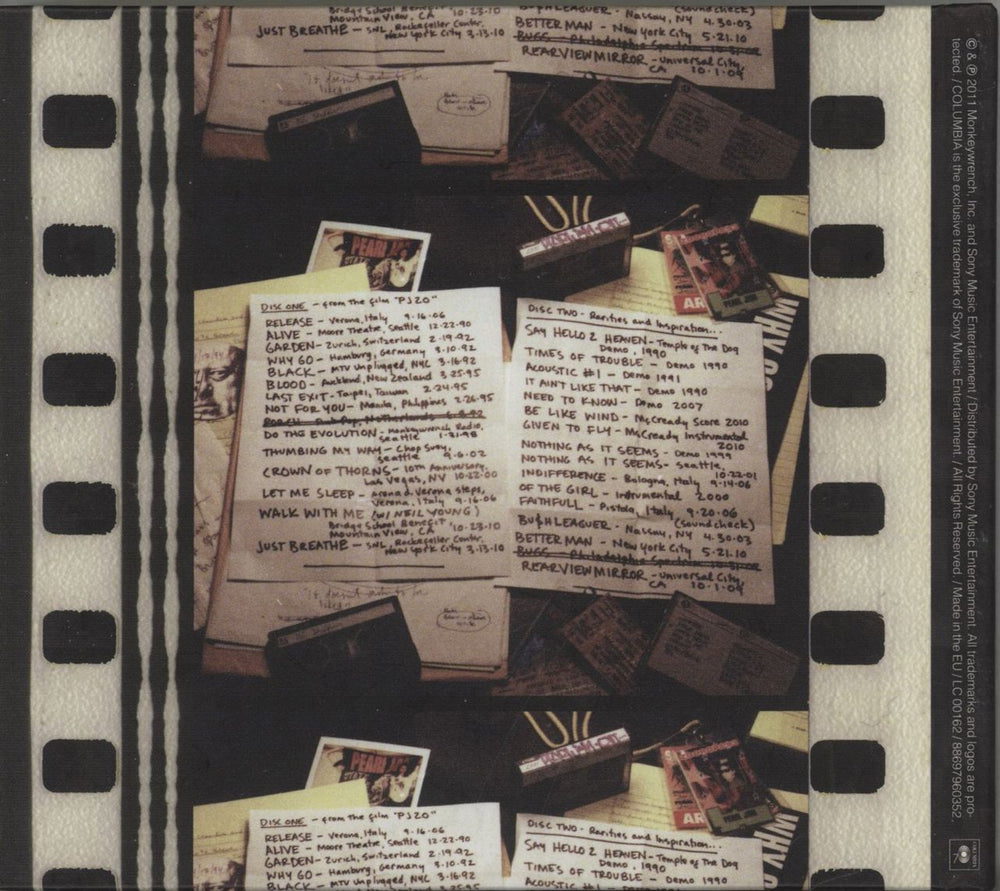 Bridge School Benefit
Mountain View, CA '10-23-10
JUST BREATHE - SNL, Rockefeller Center,
New York City 3.13.10
BU$HLEAGUER - Nassau, NY 4.30.03
BETTER MAN - New York City 5.21.10
BUGS - Philadelphia Spectrum 10-31-09
REARVIEWMIRROR - Universal City,
CA 10.1.09
PEARL JAM
DISC ONE - from the film "PJ20"
RELEASE - Verona, Italy 9-16-06
ALIVE - Moore Theatre, Seattle 12-22-90
GARDEN - Zurich, Switzerland 2-19-92
WHY GO - Hamburg, Germany 3-10-92
BLACK - MTV Unplugged, NYC 3-16-92
BLOOD - Auckland, New Zealand 3-25-95
LAST EXIT - Taipei, Taiwan 2-24-95
NOT FOR YOU - Manila, Philippines 2-26-95
PORCH - Pink Pop, Netherlands 6-8-92
DO THE EVOLUTION - Monkeywrench Radio,
Seattle 1-31-98
THUMBING MY WAY - Chop Suey,
Seattle 9-6-02
CROWN OF THORNS - 10th Anniversary,
Las Vegas, NV 10-22-00
LET ME SLEEP - arena d. Verona steps,
Verona, Italy 9-16-06
WALK WITH ME (W/ NEIL YOUNG)
Bridge School Benefit
Mountain View, CA '10-23-10
JUST BREATHE - SNL, Rockefeller Center,
New York City 3.13.10
DISC TWO - Rarities and Inspiration...
SAY HELLO 2 HEAVEN - Temple of The Dog
Demo, 1990
TIMES OF TROUBLE - Demo 1990
ACOUSTIC #1 - Demo 1991
IT AIN'T LIKE THAT - Demo 1990
NEED TO KNOW - Demo 2007
BE LIKE WIND - McCready Score 2010
GIVEN TO FLY - McCready Instrumental
2010
NOTHING AS IT SEEMS - Demo 1999
NOTHING AS IT SEEMS - Seattle,
10-22-01
INDIFFERENCE - Bologna, Italy 9-14-06
OF THE GIRL - Instrumental 2000
FAITHFULL - Pistoia, Italy 9-20-06
(soundcheck)
BU$HLEAGUER - Nassau, NY 4.30.03
BETTER MAN - New York City 5.21.10
BUGS - Philadelphia Spectrum 10-31-09
REARVIEWMIRROR - Universal City,
CA 10.1.09
PEARL JAM
WHY GO
PEARL JAM
DISC ONE - from the film "PJ20"
RELEASE - Verona, Italy 9-16-06
ALIVE - Moore Theatre, Seattle 12-22-90
GARDEN - Zurich, Switzerland 2-19-92
WHY GO - Hamburg, Germany 3-10-92
BLACK - MTV Unplugged, NYC 3-16-92
DISC TWO - Rarities and Inspiration...
SAY HELLO 2 HEAVEN - Temple of The Dog
Demo, 1990
TIMES OF TROUBLE - Demo 1990
ACOUSTIC #1 - Demo 1991
PEARL JAM
© & ℗ 2011 Monkeywrench, Inc. and Sony Music Entertainment / Distributed by Sony Music Entertainment. All trademarks and logos are pro-
tected. / COLUMBIA is the exclusive trademark of Sony Music Entertainment. / All Rights Reserved. / Made in the EU / LC 00162 / 88697960352.